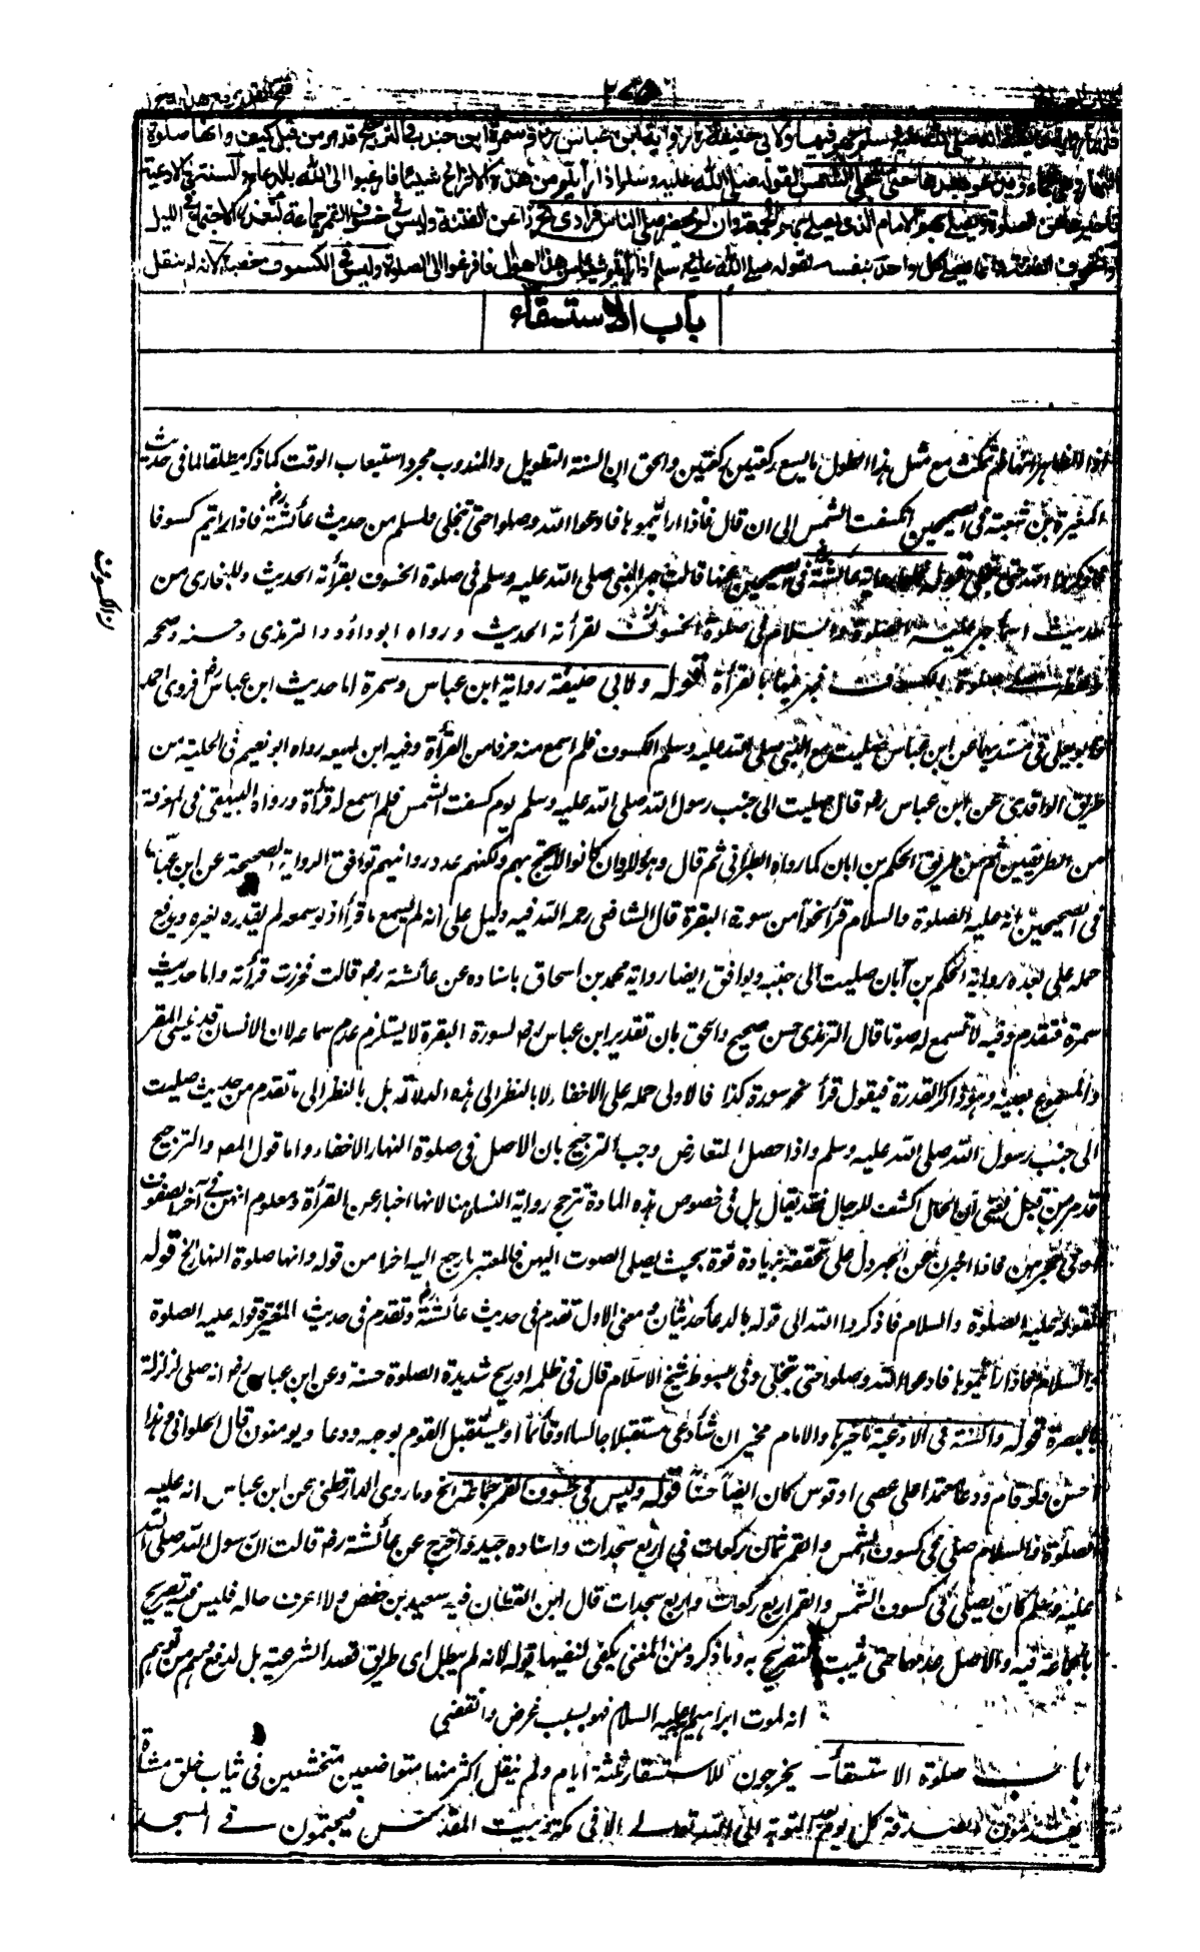 ٢٧٥
صلى الله عليه وسلم ولابي حنيفة رواية ابن عباس وسمرة ابن جندب والترجيح قد مر من قبل كيف وانها صلوة
النهار ويدعو بعدها حتى تنجلي الشمس لقوله صلى الله عليه وسلم اذا رأيتم من هذه الافزاع شيئا فارغبوا الى الله بالدعاء والسنة في الادعية
تاخيرها عن الصلوة ويصلي بهم الامام الذي يصلي بهم الجمعة وان لم يحضر صلى الناس فرادى تحرزا عن الفتنة وليس في خسوف القمر جماعة لتعذر الاجتماع في الليل
وانما يصلي كل واحد بنفسه لقوله صلى الله عليه وسلم اذا رأيتم شيئا من هذه الاهوال فافزعوا الى الصلوة وليس في الكسوف خطبة لانه لم ينقل
باب الاستسقاء
مع مثل هذا الطول ما يسع ركعتين ركعتين والحق ان السنة التطويل والمندوب مجرد استيعاب الوقت كما ذكر مطلقا لما في حديث
المغيرة بن شعبة في الصحيحين انكسفت الشمس الى ان قال فاذا رأيتموها فادعوا الله وصلوا حتى تنجلي ولمسلم من حديث عائشة رض فاذا رأيتم كسوفا
فاذكروا الله حتى ينجلي قوله عائشة في الصحيحين عنها قالت جهر النبي صلى الله عليه وسلم في صلوة الخسوف بقرأته الحديث وللبخاري من
حديث اسماء جهر عليه الصلوة والسلام في صلوة الخسوف بقرأته الحديث ورواه ابوداؤد والترمذى وحسنه وصححه
صلوة الكسوف فجهر فيها بالقرأة قوله ولابي حنيفة رواية ابن عباس وسمرة اما حديث ابن عباس رض فروى احمد
وابو يعلى في مسنديهما عن ابن عباس صليت مع النبي صلى الله عليه وسلم الكسوف فلم اسمع منه حرفا من القرأة وفيه ابن لهيعه رواه ابو نعيم في الحلية من
طريق الواقدى عن ابن عباس رض قال صليت الى جنب رسول الله صلى الله عليه وسلم يوم كسفت الشمس فلم اسمع له قرأة ورواه البيهقى في المعرفة
من الطريقين ثم من طريق الحكم بن ابان كما رواه الطبراني ثم قال وهؤلاء وان كانوا لا يحتج بهم ولكنهم عدد وروايتهم توافق الرواية الصحيحة عن ابن عباس
في الصحيحين انه عليه الصلوة والسلام قرأ نحوا من سورة البقرة قال الشافعي رحمه الله فيه دليل على انه لم يسمع ما قرأ اذ لو سمعه لم يقدره بغيره ويدفع
حمله على بعده رواية الحكم بن ابان صليت الى جنبه ويوافق ايضا رواية محمد بن اسحاق باسناده عن عائشة رض قالت فحزرت قرأته واما حديث
سمرة فتقدم وفيه لا نسمع له صوتا قال الترمذى حسن صحيح والحق بان تقدير ابن عباس رض لسورة البقرة لا يستلزم عدم سماعه لان الانسان قد ينسى المقر
والمسموع بعينه وهو ذاكر لقدره فيقول قرأ نحو سورة كذا فالاولى حمله على الاخفاء لا بالنظر الى هذه الدلالة بل بالنظر الى ما تقدم من حديث صليت
الى جنب رسول الله صلى الله عليه وسلم واذا حصل التعارض وجب الترجيح بان الاصل في صلوة النهار الاخفاء واما قول المص والترجيح
قد مر من قبل يعني ان الحال اكشف للرجال فقد يقال بل في خصوص هذه المادة ترجح رواية النساء هنا لانها اخبار عن القرأة ومعلوم انهن في آخر الصفوف
او في حجرهن فاذا اخبرن عن الجهر دل على تحققه بزيادة قوة بحيث يصل الصوت اليهن فالمعتبر ما رجح اليه اخرا من قوله وانها صلوة النهار الخ قوله
لقوله عليه الصلوة والسلام فاذكروا الله الى قوله بالدعاء حديثان ومعنى الاول تقدم في حديث عائشة رض وتقدم في حديث المغيرة قوله عليه الصلوة
والسلام فاذا رأيتموها فادعوا الله وصلوا حتى تنجلي وفي مبسوط شيخ الاسلام قال في ظلمة او ريح شديدة الصلوة حسنة وعن ابن عباس رض انه صلى لزلزلة
بالبصرة قوله والسنة في الادعية تاخيرها والامام مخير ان شاء دعى مستقبلا جالسا او قائما او يستقبل القوم بوجهه ودعا ويؤمنون قال الحلواني وهذا
احسن ولو قام ودعا معتمدا على عصى او قوس كان ايضا حسنا قوله وليس في خسوف القمر جماعة الخ وما روى الدارقطني عن ابن عباس انه عليه
الصلوة والسلام صلى في كسوف الشمس والقمر ثمان ركعات في اربع سجدات واسناده جيد واخرج عن عائشة رض قالت ان رسول الله صلى الله
عليه وسلم كان يصلي في كسوف الشمس والقمر اربع ركعات واربع سجدات قال ابن القطان فيه سعيد بن حفص ولا اعرف حاله فليس فيه تصريح
بالجماعة فيه والاصل عدمها حتى يثبت التصريح به وما ذكره من المعنى يكفى لنفيها قوله لانه لم ينقل اى طريق قصد الشرعية بل لدفع وهم من توهم
انه لموت ابراهيم عليه السلام فهو بسبب عرض وانقضى
باب صلوة الاستسقاء يخرجون للاستسقاء ثلثة ايام ولم ينقل اكثر منها متواضعين متخشعين في ثياب خلق مشاة
يقدمون الصدقة كل يوم بعد التوبة الى الله تعالى الا في مكة وبيت المقدس فيجتمعون في المسجد